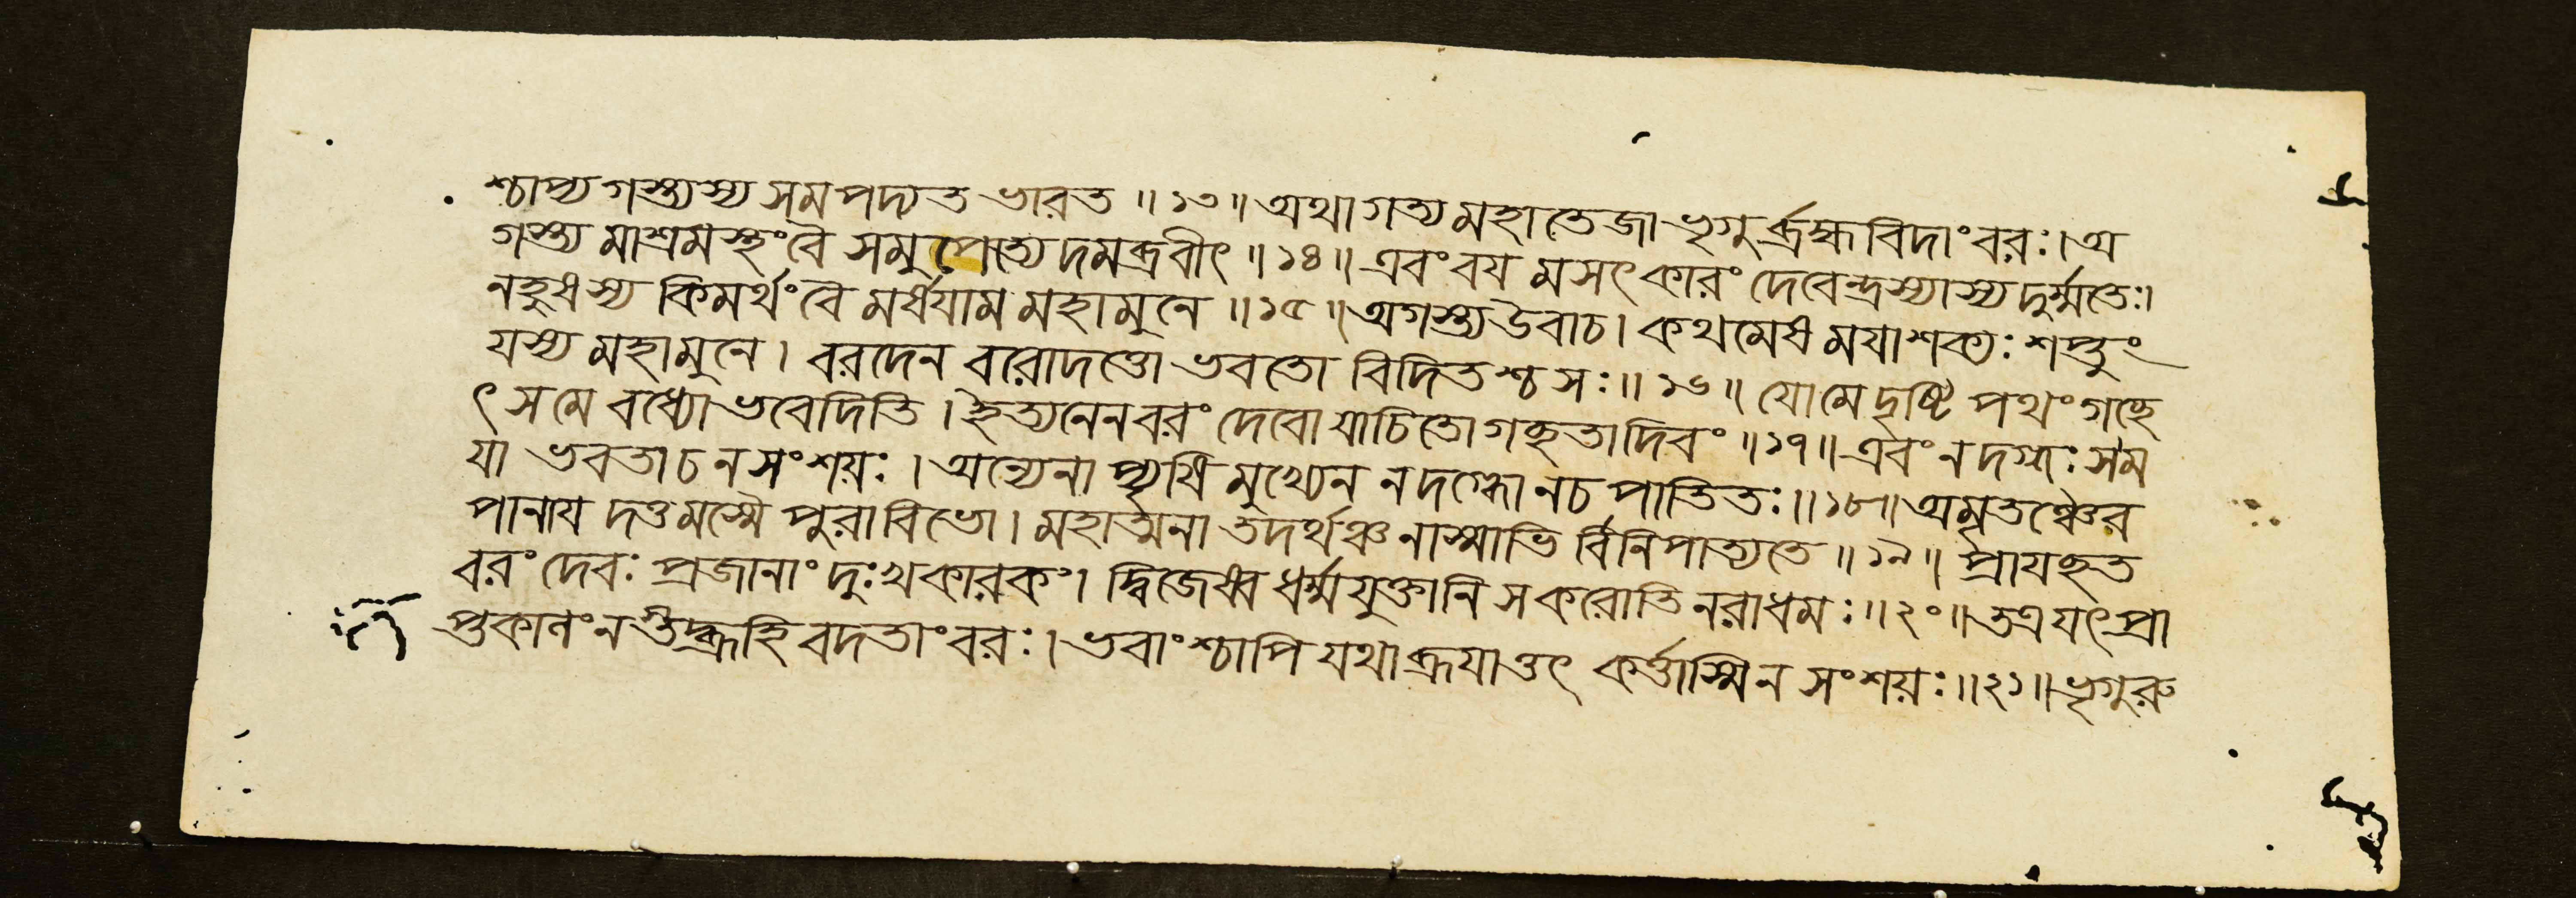 শ্চাপ্য গস্ত্যস্য সমপদ্যত ভারত ॥ ১৩ ॥ অথাগত্য মহাতেজা ভৃগুর্ব্রহ্মবিদাং বরঃ। অ
গস্ত্য মাশ্রমস্থং বৈ সমুপেত্য দমব্রবীৎ ॥ ১৪ ॥ এবং বয় মসৎকারং দেবেন্দ্রস্যাস্য দুর্ম্মতেঃ।
নহুষস্য কিমর্থং বৈ মর্ষয়াম মহামুনে ॥ ১৫ ॥ অগস্ত্য উবাচ। কথমেষ ময়া শক্যঃ শপ্তুং
যস্য মহামুনে। বরদেন বরোদত্তো ভবতো বিদিতশ্চ সঃ ॥ ১৬ ॥ যোমে দৃষ্টি পথং গচ্ছে
ৎ সমে বধ্যো ভবেদিতি। ইত্যনেন বরং দেবো যাচিতো গচ্ছতা দিবং ॥ ১৭ ॥ এবং ন দগ্ধঃ সম
যা ভবতা চ ন সংশয়ঃ। অন্যেনা প্যৃষি মুখ্যেন ন দগ্ধো নচ পাতিতঃ ॥ ১৮ ॥ অমৃতঞ্চৈব
পানায় দত্তমস্মৈ পুরা বিভো। মহাত্মনা তদর্থঞ্চ নাস্মাভি র্বিনিপাত্যতে ॥ ১৯ ॥ প্রাযচ্ছত
বরং দেবঃ প্রজানাং দুঃখকারকং। দ্বিজেষ্বধর্ম্মযুক্তানি স করোতি নরাধমঃ ॥ ২০ ॥ তত্র যৎ প্রা
প্তকালং ন স্তদ্ব্রূহি বদতাং বরঃ। ভবাংশ্চাপি যথা ব্রূয়াত্তৎ কর্ত্তাস্মি ন সংশয়ঃ ॥ ২১ ॥ ভৃগুরু